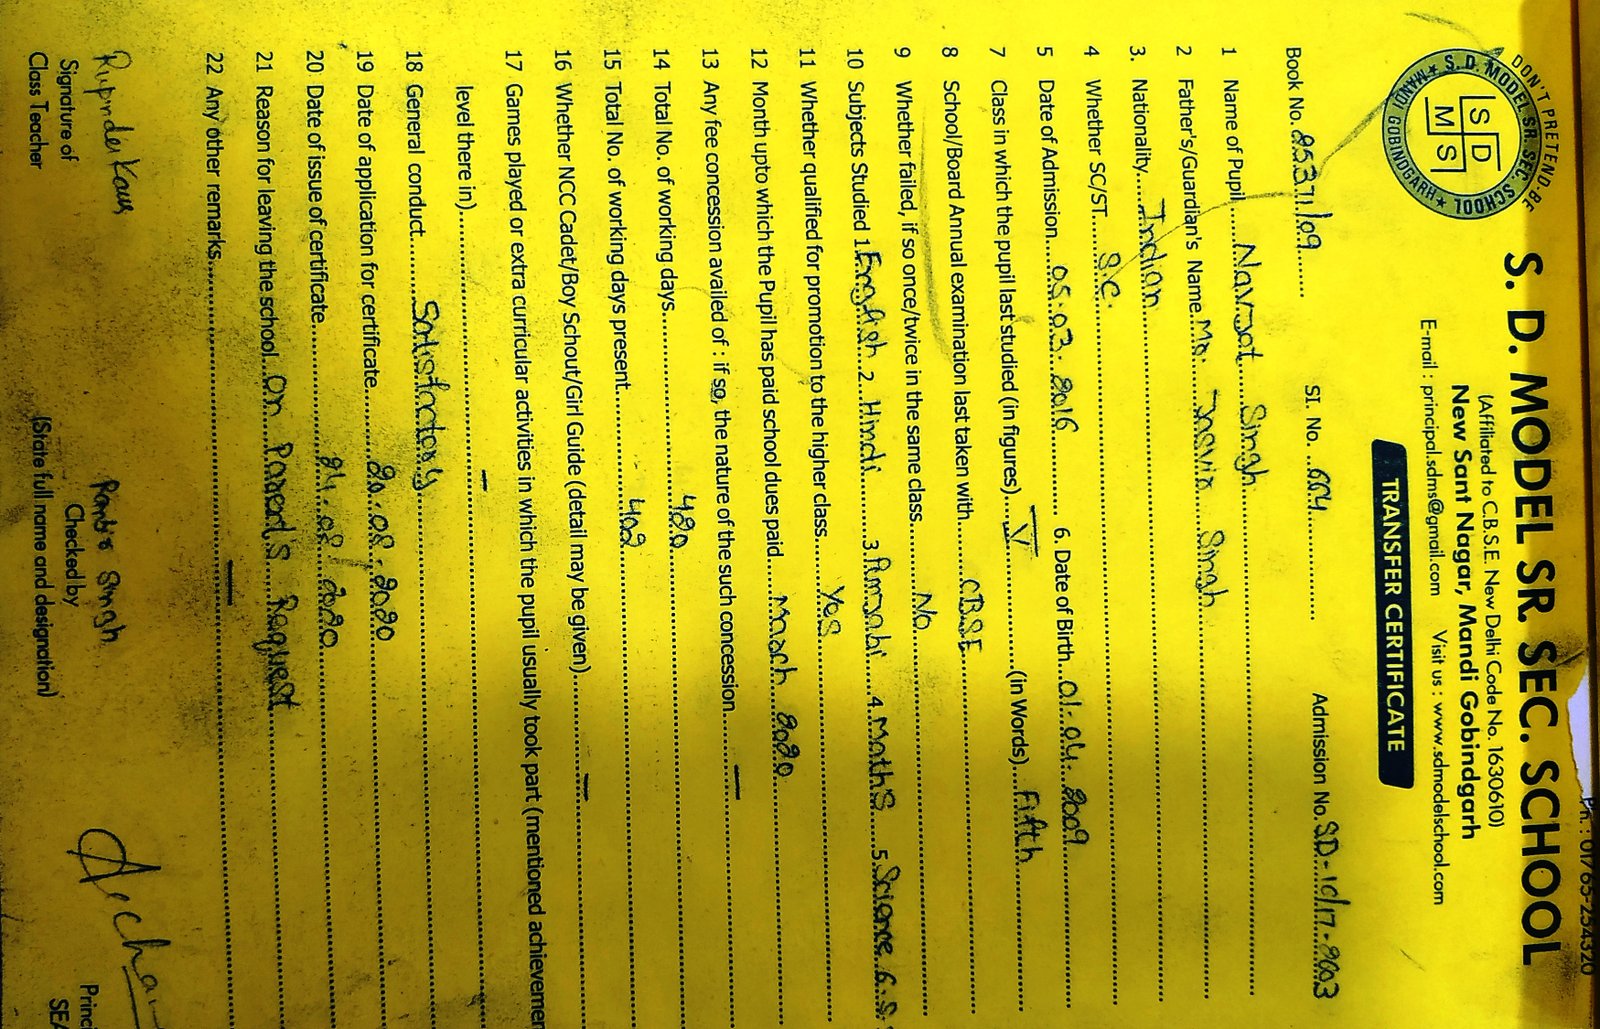 Ph.: 01765-254320
DON'T PRETEND-BE
S. D. MODEL SR. SEC. SCHOOL
MANDI GOBINDGARH
S D
M S
S. D. MODEL SR. SEC. SCHOOL
(Affiliated to C.B.S.E. New Delhi Code No. 1630610)
New Sant Nagar, Mandi Gobindgarh
E-mail : principal.sdms@gmail.com Visit us : www.sdmodelschool.com
TRANSFER CERTIFICATE
Book No. 2537/09 SI. No. 604 Admission No. SD-10/17-2003
1 Name of Pupil Navjot Singh
2 Father's/Guardian's Name Mr. Singh
3. Nationality Indian
4 Whether SC/ST S.C.
5 Date of Admission 05.03.2016 6. Date of Birth 01.04.2009
7 Class in which the pupil last studied (in figures) V (in Words) Fifth
8 School/Board Annual examination last taken with CBSE
9 Whether failed, if so once/twice in the same class No
10 Subjects Studied 1. English 2 Hindi 3 Punjabi 4. Maths 5. Science 6. S.
11 Whether qualified for promotion to the higher class Yes
12 Month upto which the Pupil has paid school dues paid March 2020
13 Any fee concession availed of : if so, the nature of the such concession —
14 Total No. of working days 420
15 Total No. of working days present 402
16 Whether NCC Cadet/Boy Schout/Girl Guide (detail may be given) —
17 Games played or extra curricular activities in which the pupil usually took part (mentioned achievemen
level there in) —
18 General conduct Satisfactory
19 Date of application for certificate 20.08.2020
20 Date of issue of certificate 24.08.2020
21 Reason for leaving the school On Parent's Request
22 Any other remarks —
Rupinder Kaur Singh
Signature of Checked by Princi
Class Teacher (State full name and designation) SEA